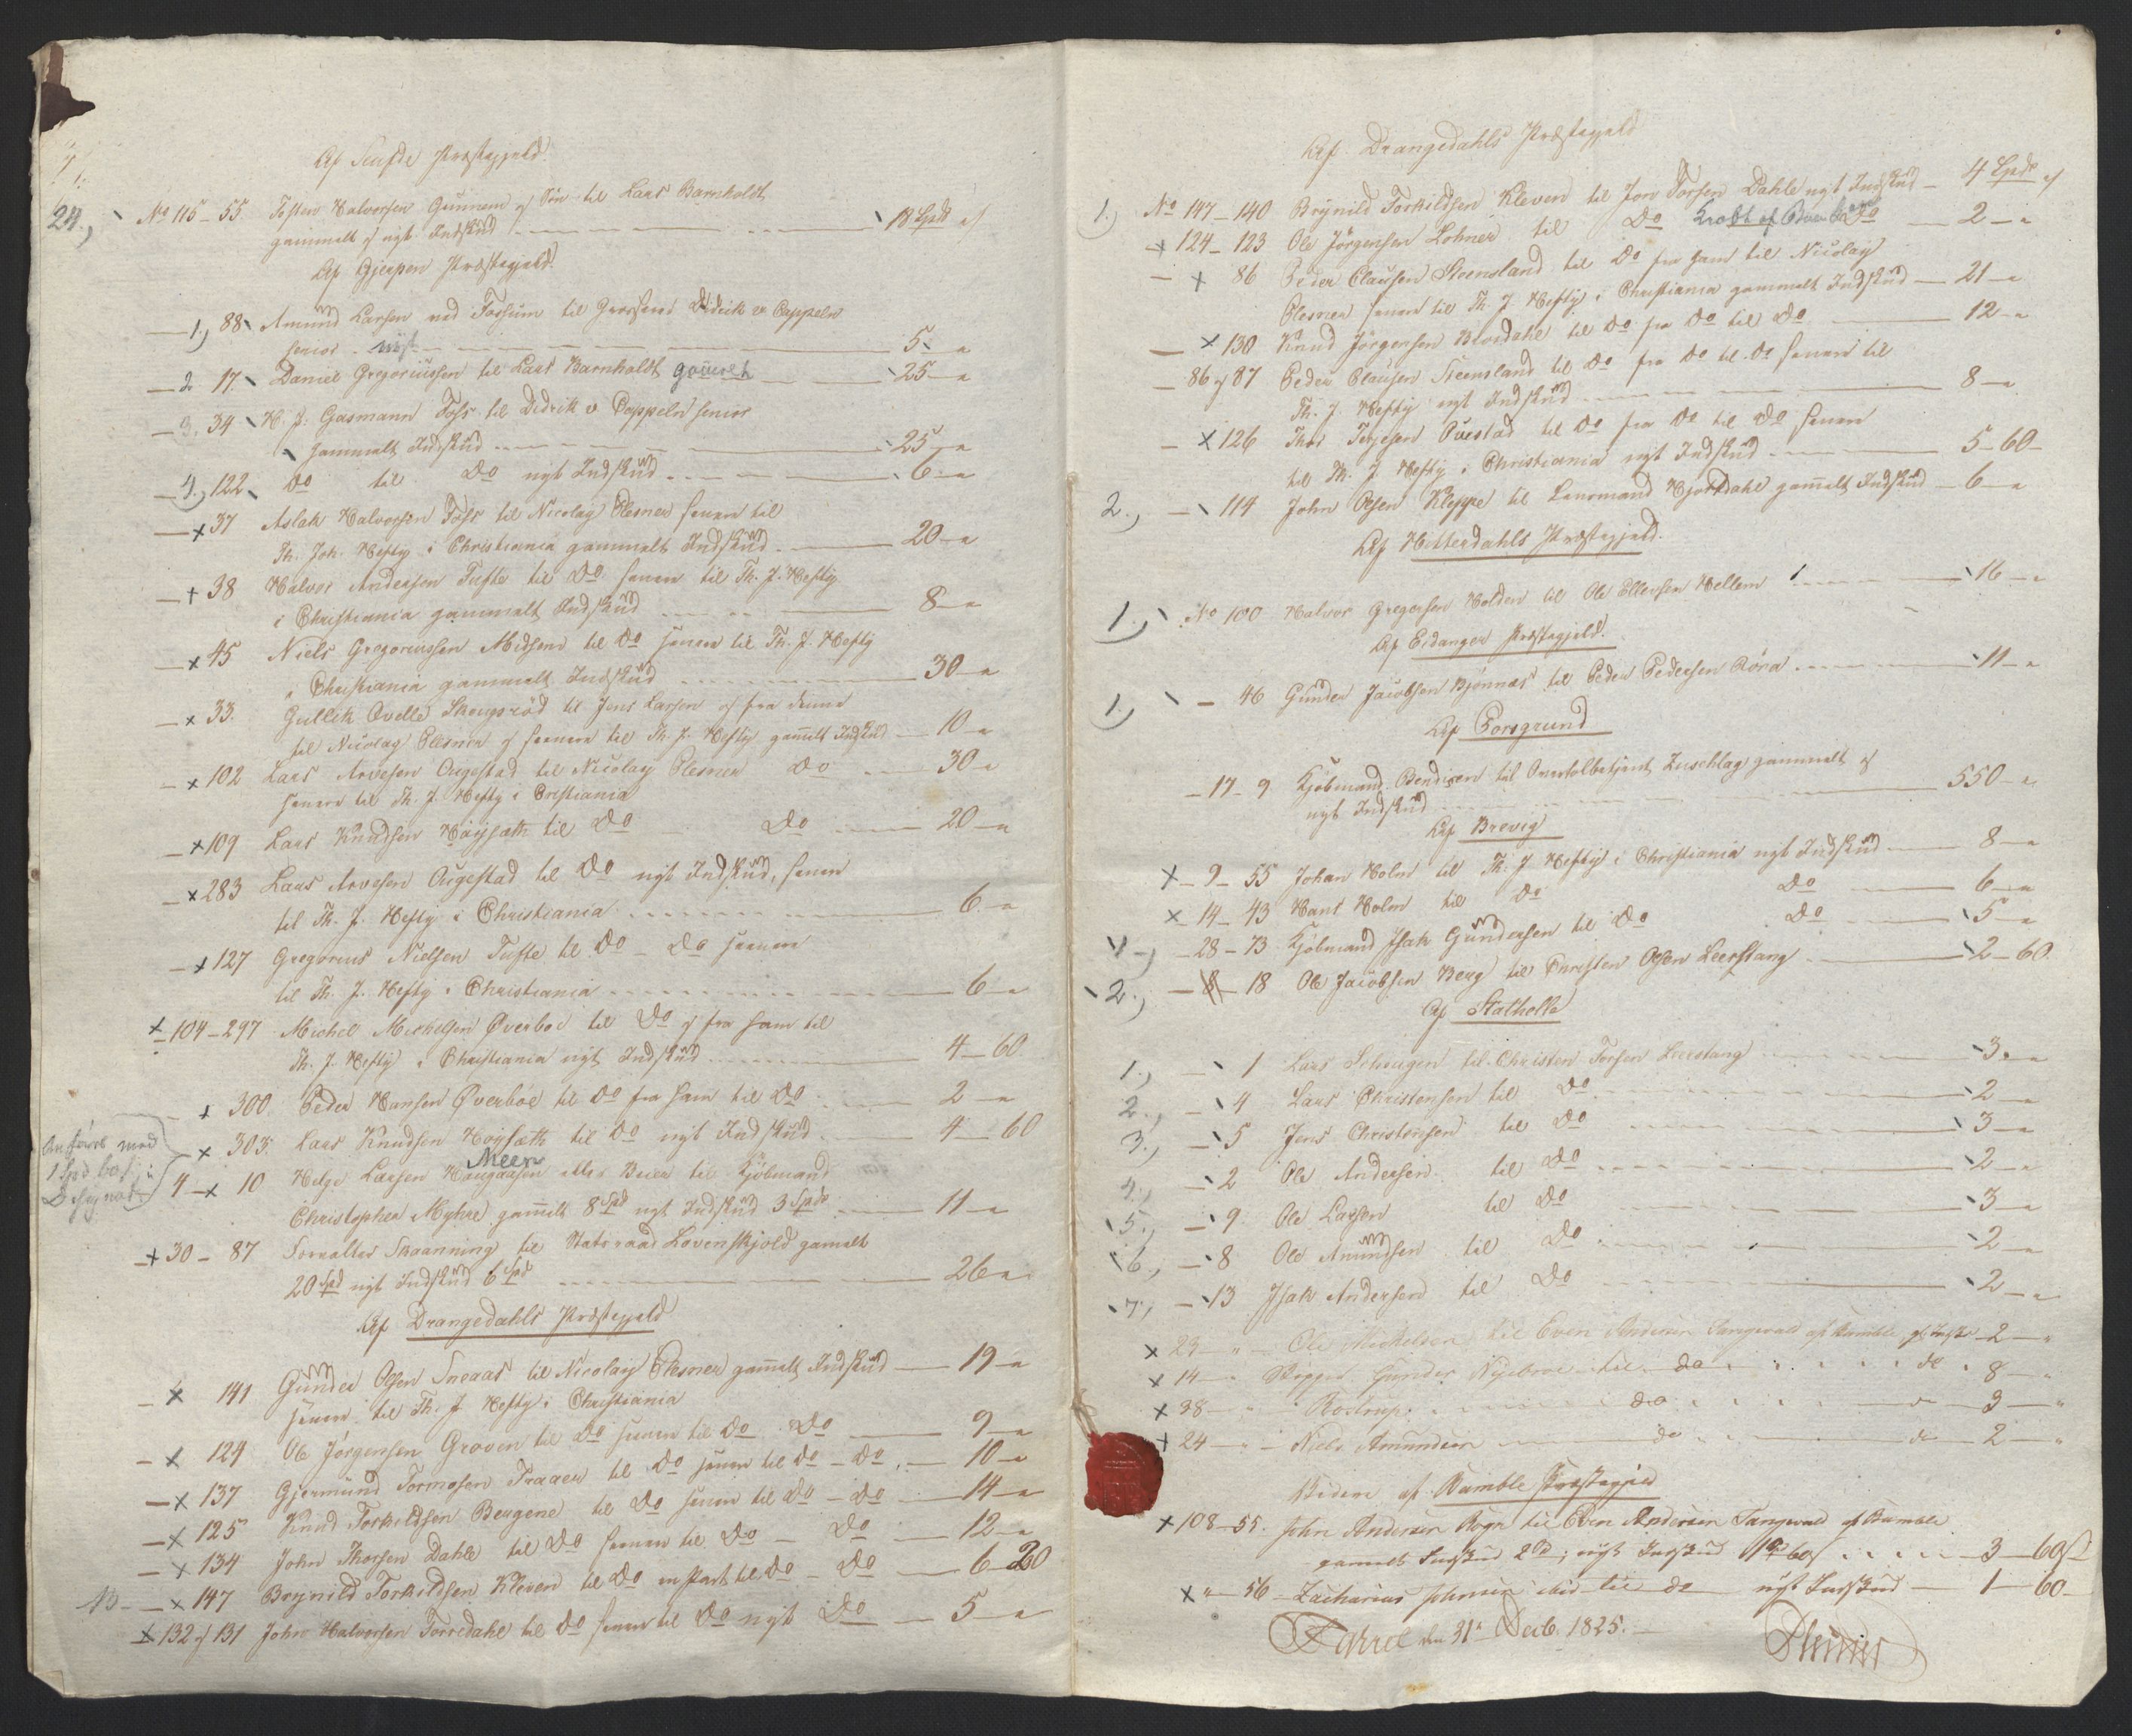 Af Saufde Præstegjeld.
24., No 115-55 Tosten Halvorsen Gunnem og Søn til Lars Barnholdt
gammelt og nyt Indskud 18 Spd
Af Gjerpen Præstegjeld.
1., 88 Amund Larsen ved Fossum til Grosserer Didrik v Cappelen
senior nyt 5 "
2. 17. Daniel Gregoriussen til Lars Barnholdt gammelt 25 "
3. 34 H. J. Gasmann Foss til Didrik v Cappelen senior
gammelt Indskud 25 "
4., 122 Do til Do nyt Indskud 6 "
x 37 Aslak Halvorsen Foss til Nicolay Plesner senere til
Th. Joh. Hefty i Christiania gammelt Indskud 20 "
x 38 Halvor Andersen Tufte til Do senere til Th. J. Hefty
i Christiania gammelt Indskud 8 "
x 45 Niels Gregoriussen Midsem til Do senere til Th. J. Hefty
i Christiania gammelt Indskud 30 "
x 33. Gullik Skougsrød til Jens Larsen og fra denne
til Nicolay Plesner og senere til Th. J. Hefty gammelt Indskud 10 "
x 102 Lars Arvesen Augestad til Nicolay Plesner Do 30 "
senere til Th. J. Hefty i Cristiania
x 109 Lars Knudsen Høysæth til Do Do 20 "
x 283 Lars Arvesen Augestad til Do nyt Indskud, senere
til Th. J. Hefty i Christiania 6 "
x 127 Gregorius Nielsen Tufte til Do - Do senere
til Th. J. Hefty i Christiania 6 "
x 104-297 Michel Michelsen Øverboe til Do og fra ham til
Th. J. Hefty i Christiania nyt Indskud 4 - 60
x 300. Peder Hansen Øverboe til Do fra ham til Do 2 "
x 303. Lars Knudsen Høysæth til Do nyt Indskud 4 - 60
Anført med
1 Spd
4 - x 10 Helge Larsen Haugaasen Meen eller til Kjøbmand
Christopher Myhre gammelt 8 Spd nyt Indskud 3 Spd 11 "
x 30 - 87 Forvalter Skaanning til Statsraad Løvenskjold gamelt
20 Spd nyt Indskud 6 Spd 26 "
Af Drangedahls Præstegjeld
x 141 Gunder Olsen Sneaas til Nicolay Plesner gammelt Indskud 19 "
senere til Th. J Hefty i Christiania
x 124 Ole Jørgensen Groven til Do senere til Do Do 9 "
x 137 Gjermund Tormosen Traaen til Do senere til Do - Do 10 "
x 125 Knud Torkildsen Bergene til Do senere til Do - Do 14 "
x 134 John Thorsen Dahle til Do senere til Do - Do 12 "
x 147 Brynild Torkildsen Kleven til Do til Do - Do 6 - 20
x 132 og 131 John Halvorsen Torredahl til Do senere til Do nyt Do 5 "
Af Drangedahls Præstegjeld
1.) No 147-140 Brynild Torkildsen Kleven til Jon Torsen Dahle nyt Indskud 4 Spd
x 124-123 Ole Jørgensen Lohnes til Do Do 2 "
x 86 Peder Clausen Steensland til Do fra ham til Nicolay
Plesner senere til Th. J. Hefty i Christiania gammelt Indskud 21 "
x 130 Knud Jørgensen til Do fra Do til Do 12 "
86 og 87 Peder Clausen Steensland til Do fra Do til Do senere til
Th. J. Hefty nyt Indskud 8 "
x 126 Thor Terjesen til Do fra Do til Do senere
til Th. J. Hefty i Christiania nyt Indskud 5 - 60
2., 114 John Olsen Kleppe til Lensmand Hjordtdahl gammelt Indskud 6 "
Af Hitterdahls Præstegjeld.
1., No 100 Halvor Gregersen Holden til Ole Ellevsen Hellem 16 "
Af Eidanger Præstegjeld.
1.) 46 Gunder Jacobsen Bjønnæs til Peder Pedersen Røra 11 "
Af Porsgrund
17 - 9 Kjøbmand Bendixen til Overtolbetjent Zuschlag gammelt og
nyt Indskud 550 "
Af Brevig
x 9 - 55 Johan Holm til Th. J Hefty i Christiania nyt Indskud 8 "
x 14 - 43 Hans Holm til Do Do 6 "
28 - 73 Kjøbmand Isak Gundersen til Do Do 5 "
2., 18 Ole Jacobsen Berg til Christen Olsen Leerstang 2 - 60.
Af Stathelle
1., 1 Lars til Christen Torsen Leerstang 3 "
2., 4 Lars Christensen til Do 2 "
3., 5 Jens Christensen til Do 3 "
4., 2 Ole Andersen til Do 2 "
5., 9. Ole Larsen til Do 3 "
6., 8 Ole Amundsen til Do 2 "
7., 13 Isak Andersen til Do 2 "
x 23 " Ole Mickelsen til Even Andersen Tangvald af Bamble 2 "
x 14 " Skipper Gunder Nyebroe til do do 8 "
x 38 " Rostrup do 3 "
x 24 " Niels Amundsen do do 2 "
Videre af Bamble Præstegjeld
x 108-55. John Andersen Rogn til Even Andersen Tangvald af Bamble
gammelt Indskud 2 Sp; nyt Indskud 1 Sp 60 3 - 60
x " 56 - Zacharias Johnsen til do nyt Indskud 1 - 60
den 31te Decb. 1825.
Plesner